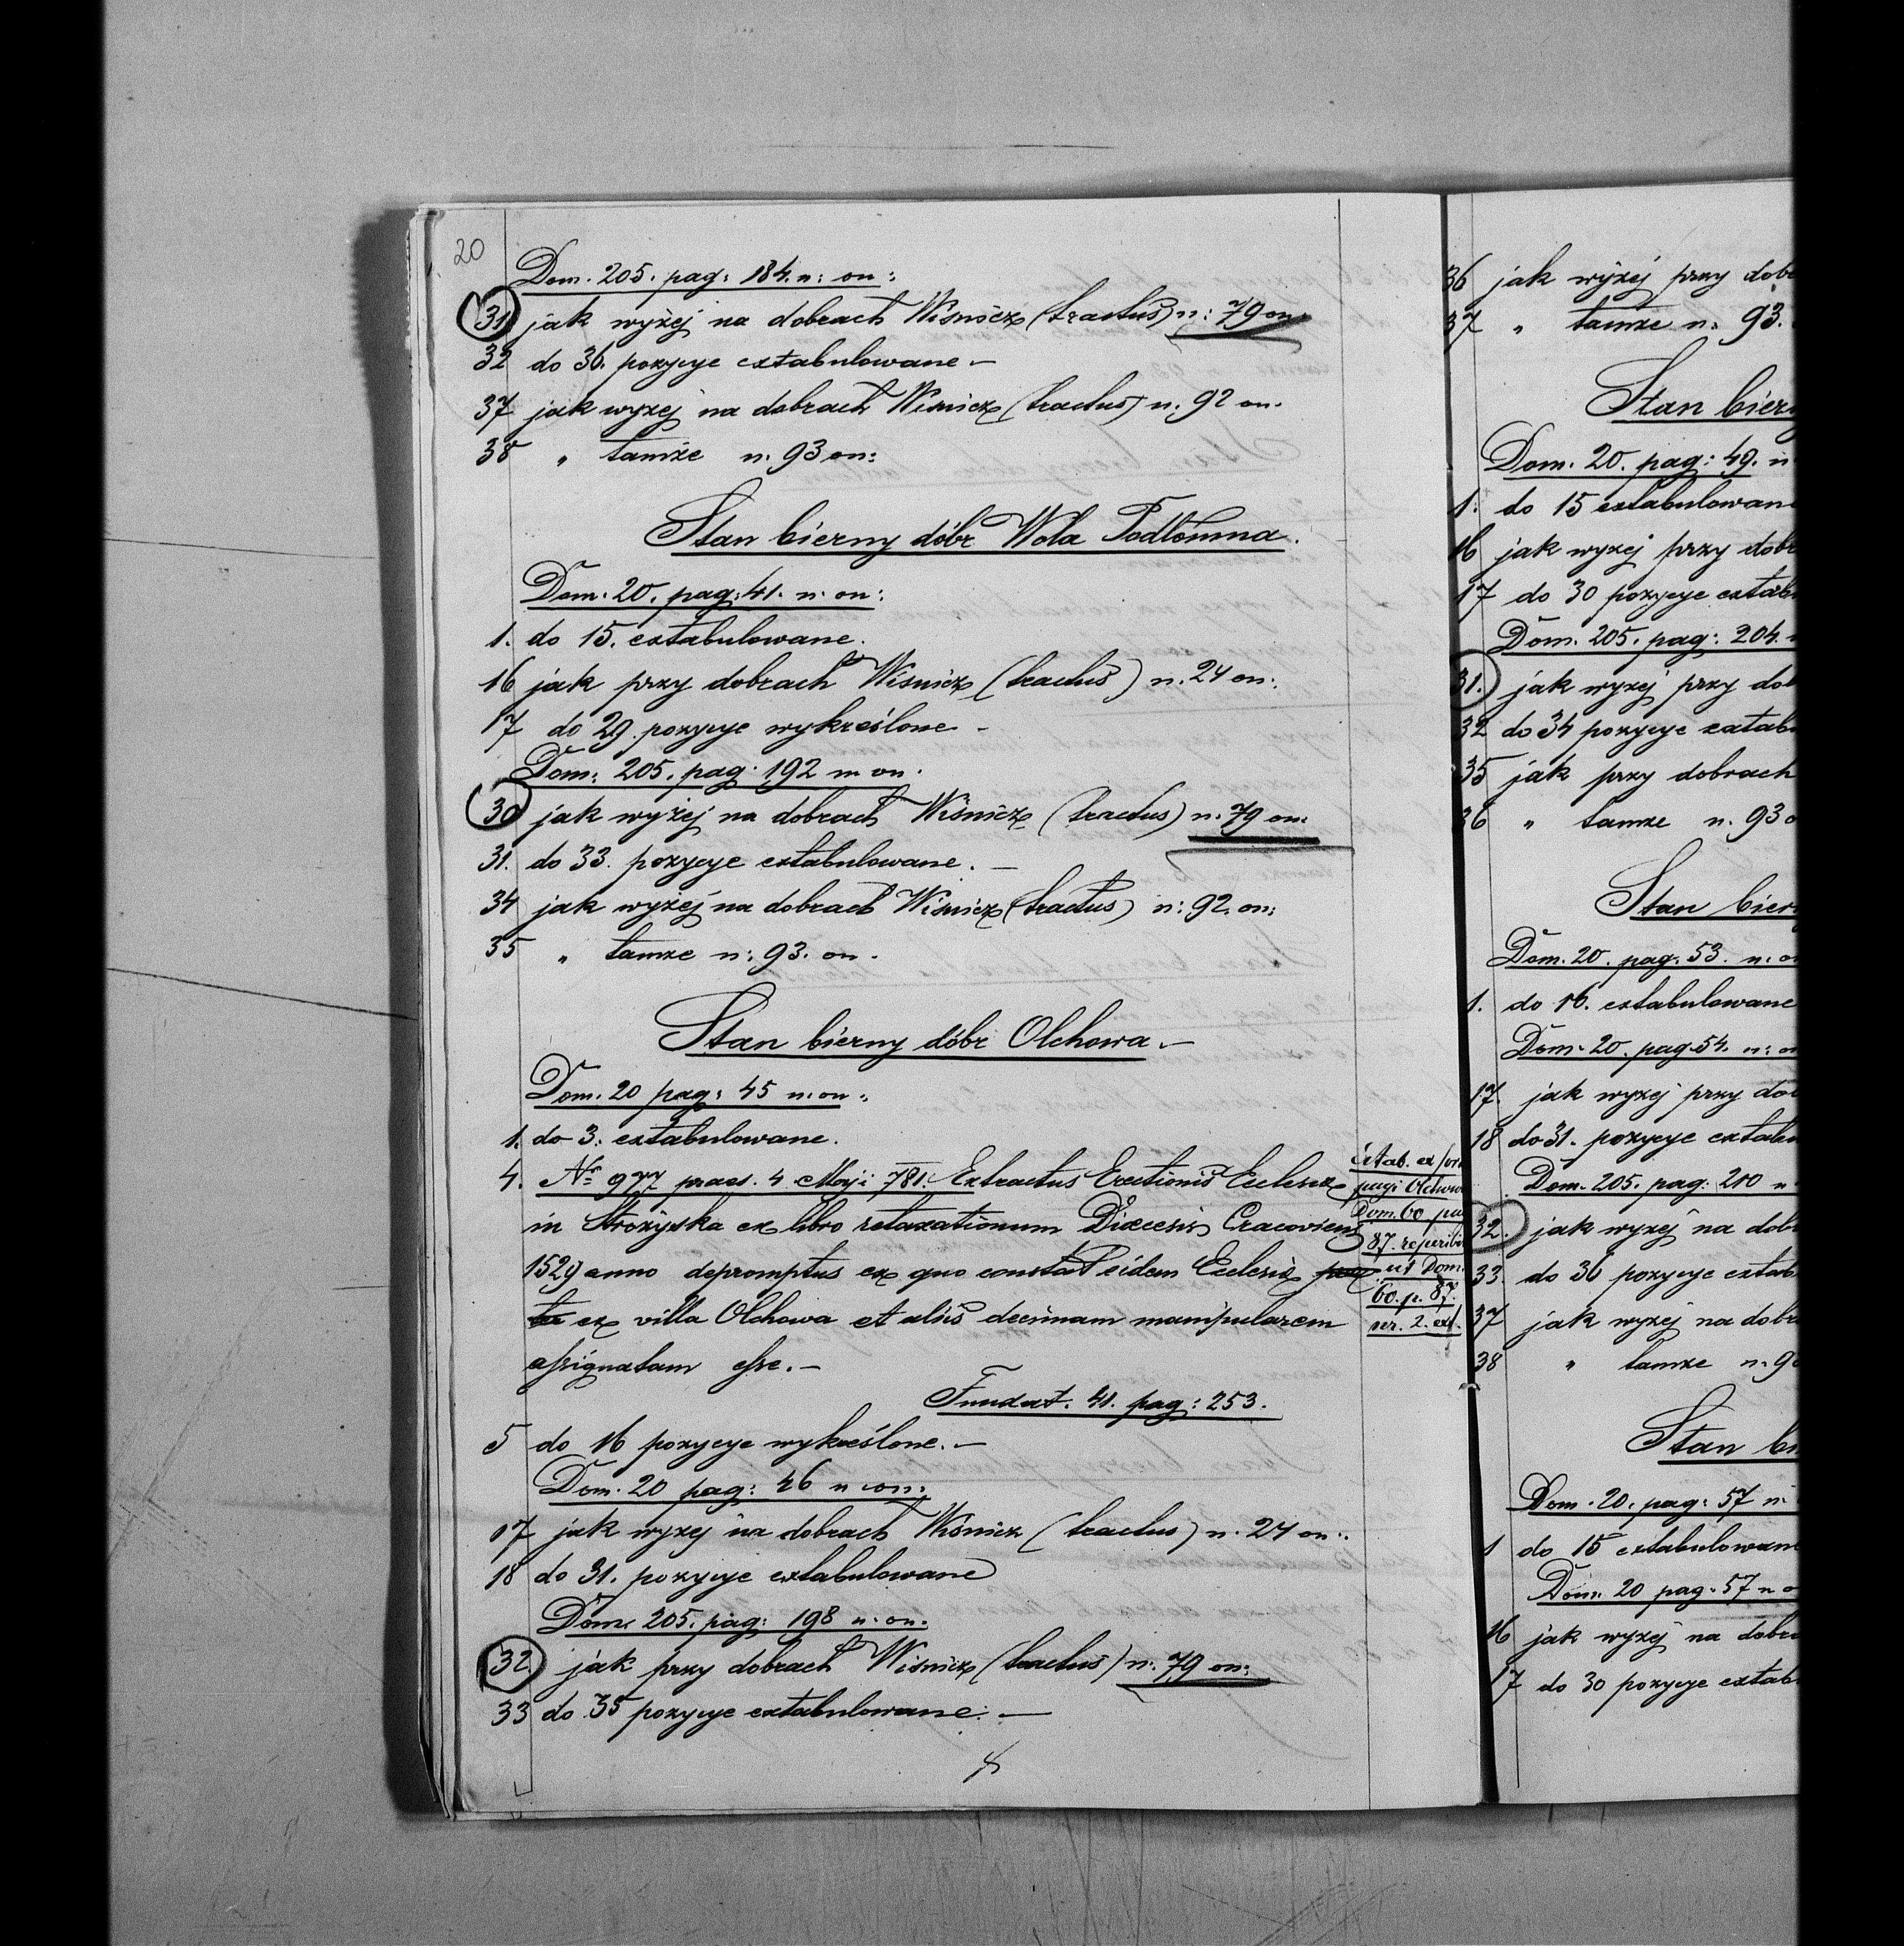 20
Dom. 205. pag: 184. n: on:
31 jak wyżej na dobrach Wisnicz (tractus) n: 79 on:
32 do 36. pozycye extabulowane –
37 jak wyzej na dobrach Wisnicz (tractus) n. 92 on.
38 " tamże n. 93 on:
Stan bierny dóbr Wola Podłomna.
Dom. 20. pag: 41. n. on:
1. do 15. extabulowane.
16 jak przy dobrach Wisnicz (tractus) n. 24 on:
17 do 29 pozycye wykreślone –
Dom: 205. pag. 192 n on.
30 jak wyżej na dobrach Wisnicz (tractus) n. 79 on:
31. do 33. pozycye extabulowane. –
34 jak wyżej na dobrach Wisnicz (tractus) n: 92. on:
35 " tamze n: 93. on.
Stan bierny dóbr Olchowa. –
Dom. 20 pag: 45 n: on:
1. do 3. extabulowane.
4. Nr 977 praes. 4 Maji 781. Extractus Erectionis Ecclesiæ
in Strożyska ex libro retaxationum Diæcesis Cracoviens
1529 anno depromptus ex quo constat eidem Ecclesiæ
ex villa Olchowa et aliis decimam manipularem
assignatam esse. –
Extab. ex
pagi Olchow
Dom. 60 pa
87. reperibi
ut Dom.
60. p. 87.
nr. 2. ext.
Fundat. 41. pag: 253.
5 do 16 pozycye wykreślone. –
Dom. 20 pag: 46 n on:
17 jak wyzej na dobrach Wisnicz (tractus) n. 24 on:
18 do 31. pozycye extabulowane
Dom. 205. pag: 198 n: on.
32 jak przy dobrach Wisnicz (tractus) n: 79 on:
33 do 35 pozycye extabulowane. –
36 jak wyżej przy dob
37 " tamze n: 93.
Stan bier
Dom. 20. pag: 49. n
1. do 15 extabulowan
16 jak wyzej przy dob
17 do 30 pozycye extab
Dom. 205. pag: 204.
31. jak wyzej przy dob
32 do 34 pozycye extab
35 jak przy dobrach
36 " tamze n. 93 o
Stan bier
Dom. 20. pag. 53. n: o
1. do 16. extabulowane
Dom. 20. pag 54. n: o
17. jak wyzej przy do
18 do 31. pozycye extab
Dom. 205. pag: 210 n
32. jak wyzej na dob
33. do 36 pozycye extab
37 jak wyzej na dobr
38 " tamze n. 9
Stan b
Dom. 20. pag: 57 n
1 do 15 extabulowan
Dom. 20 pag. 57 n o
16 jak wyzej na dobr
17 do 30 pozycye extab